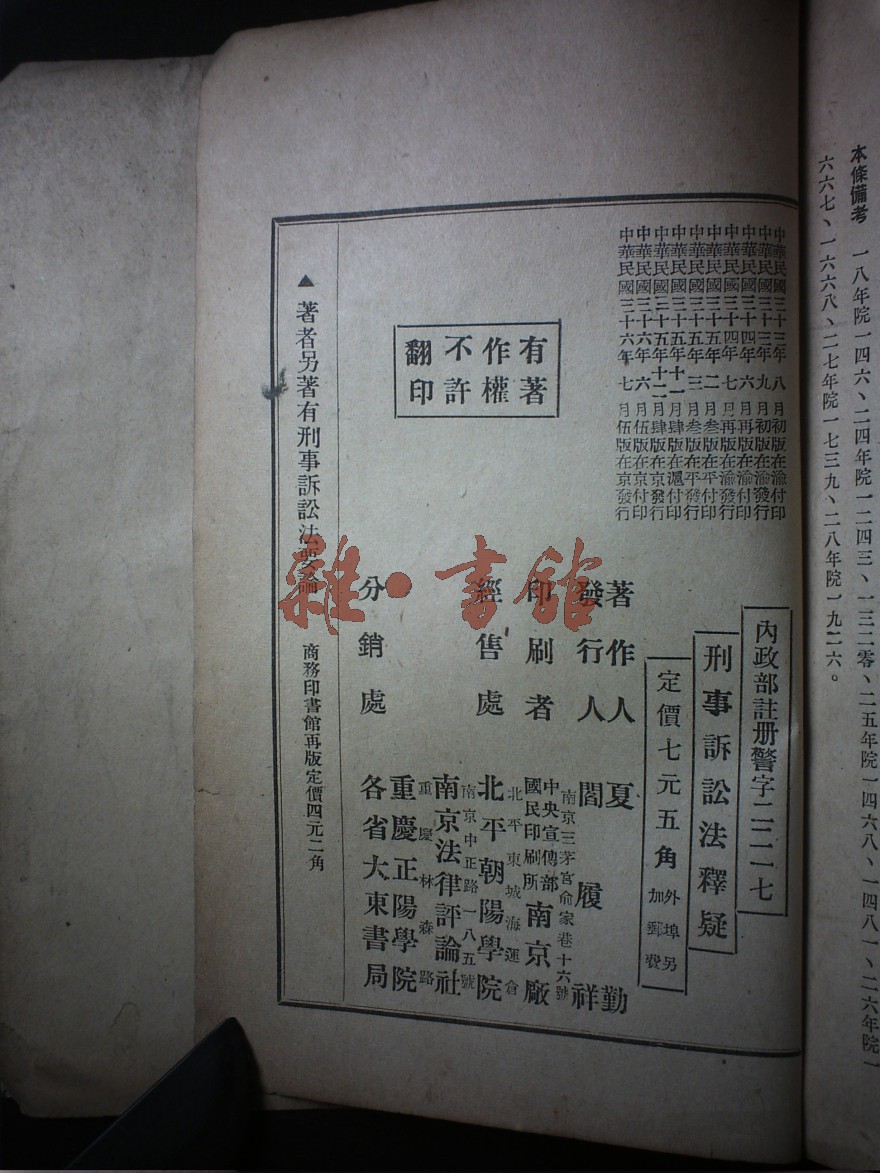 本條備考　一八年院一四六、二四年院一二四三、一三二零、二五年院一四六八、一四八一、二六年院一
六六七、一六六八、二七年院一七三九、二八年院一九二六。
中華民國三十三年八月初版在渝付印
中華民國三十三年九月初版在渝發行
中華民國三十四年六月再版在渝付印
中華民國三十四年七月再版在渝發行
中華民國三十五年二月叁版在平付印
中華民國三十五年三月叁版在平發行
中華民國三十五年十一月肆版在滬付印
中華民國三十五年十二月肆版在京發行
中華民國三十六年六月伍版在京付印
中華民國三十六年七月伍版在京發行
有著
作權
不許
翻印
內政部註册警字二二一七
刑事訴訟法釋疑
定價七元五角 外埠另加郵費
著作人 夏勤
發行人 閻履祥
南京三茅宮俞家巷十六號
印刷者 中央宣傳部國民印刷所南京廠
北平東城海運倉
經售處 北平朝陽學院
南京中正路一八五號
南京法律評論社
重慶林森路
重慶正陽學院
分銷處 各省大東書局
▲著者另著有刑事訴訟法要論 商務印書館再版定價四元二角
雜·書館